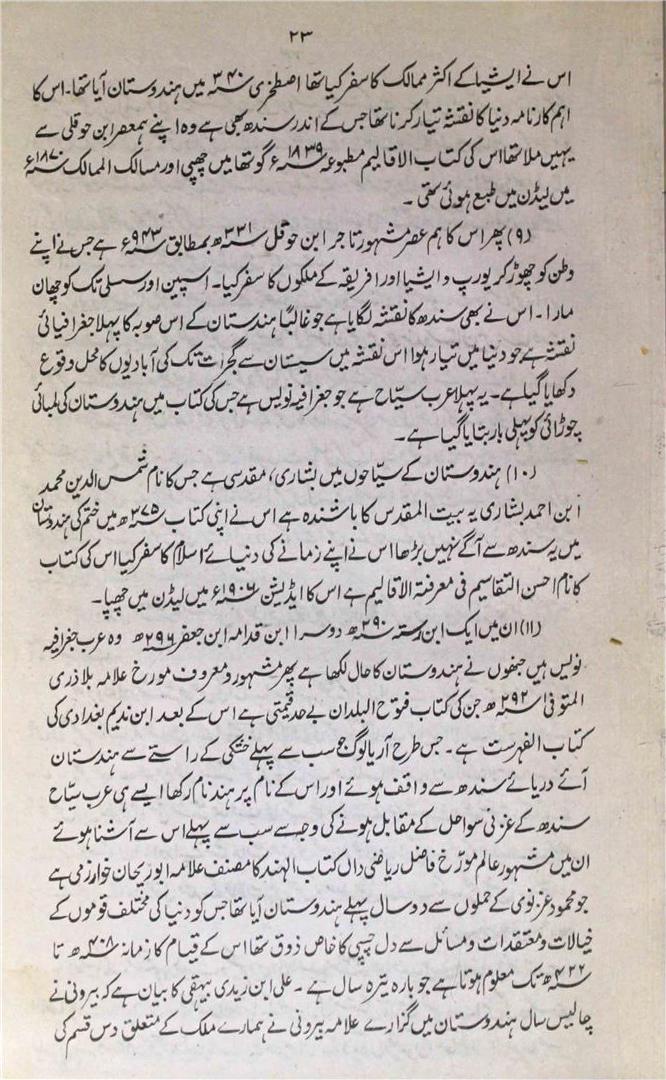 ۲۳
اس نے ایشیا کے اکثر ممالک کا سفر کیا تھا اصطخری ۳۴۰ھ میں ہندوستان آیا تھا۔ اس کا
اہم کارنامہ دنیا کا نقشہ تیار کرنا تھا جس کے اندر سندھ بھی ہے وہ اپنے ہمعصر ابن حوقلی سے
یہیں ملا تھا اس کی کتاب الاقالیم مطبوعہ ۱۸۳۹ء گوتھا میں چھپی اور مسالک الممالک ۱۸۷۰ء
میں لیڈن میں طبع ہوئی تھی ۔
(۹) پھر اس کا ہم عصر مشہور تاجر ابن حوقل ۳۳۱ھ بمطابق ۹۴۳ء ہے جس نے اپنے
وطن کو چھوڑ کر یورپ و ایشیا اور افریقہ کے ملکوں کا سفر کیا۔ اسپین اور سسلی تک کو چھان
مارا۔ اس نے بھی سندھ کا نقشہ لگایا ہے جو غالباً ہندستان کے اس صوبہ کا پہلا جغرافیائی
نقشہ ہے جو دنیا میں تیار ہوا اس نقشہ میں سیستان سے گجرات تک کی آبادیوں کا محل وقوع
دکھایا گیا ہے۔ یہ پہلا عرب سیّاح ہے جو جغرافیہ نویس ہے جس کی کتاب میں ہندوستان کی لمبائی
چوڑائی کو پہلی بار بتایا گیا ہے۔
(۱۰) ہندوستان کے سیّاحوں میں بشاری، مقدسی ہے جس کا نام شمس الدین محمد
ابن احمد بشاری یہ بیت المقدس کا باشندہ ہے اس نے اپنی کتاب ۳۷۵ھ میں ختم کی ہندوستان
میں یہ سندھ سے آگے نہیں بڑھا اس نے اپنے زمانے کی دنیائے اسلام کا سفر کیا اس کی کتاب
کا نام احسن التقاسیم فی معرفتہ الاقالیم ہے اس کا ایڈیشن ۱۹۰۶ء میں لیڈن میں چھپا۔
(۱۱) ان میں ایک ابن رستہ ۲۹۰ھ دوسرا ابن قدامہ ابن جعفر ۲۹۶ھ وہ عرب جغرافیہ
نویس ہیں جنھوں نے ہندوستان کا حال لکھا ہے پھر مشہور و معروف مورخ علامہ بلاذری
المتوفی ۲۹۲ھ جن کی کتاب فتوح البلدان بے حد قیمتی ہے اس کے بعد ابن ندیم بغدادی کی
کتاب الفہرست ہے۔ جس طرح آریا لوگ سب سے پہلے خشکی کے راستے سے ہندستان
آئے دریائے سندھ سے واقف ہوئے اور اس کے نام پر ہند نام رکھا ایسے ہی عرب سیّاح
سندھ کے غربی سواحل کے مقابل ہونے کی وجہ سے سب سے پہلے اس سے آشنا ہوئے
ان میں مشہور عالم مورّخ فاضل ریاضی داں کتاب الہند کا مصنف علامہ ابو ریحان خوارزمی ہے
جو محمود غزنوی کے حملوں سے دو سال پہلے ہندوستان آیا تھا جس کو دنیا کی مختلف قوموں کے
خیالات و معتقدات و مسائل سے دل چسپی کا خاص ذوق تھا اس کے قیام کا زمانہ ۴۰۸ھ تا
۴۲۲ھ تک معلوم ہوتا ہے جو بارہ تیرہ سال ہے ۔ علی ابن زیدی بیہقی کا بیان ہے کہ بیرونی نے
چالیس سال ہندوستان میں گزارے علامہ بیرونی نے ہمارے ملک کے متعلق دس قسم کی